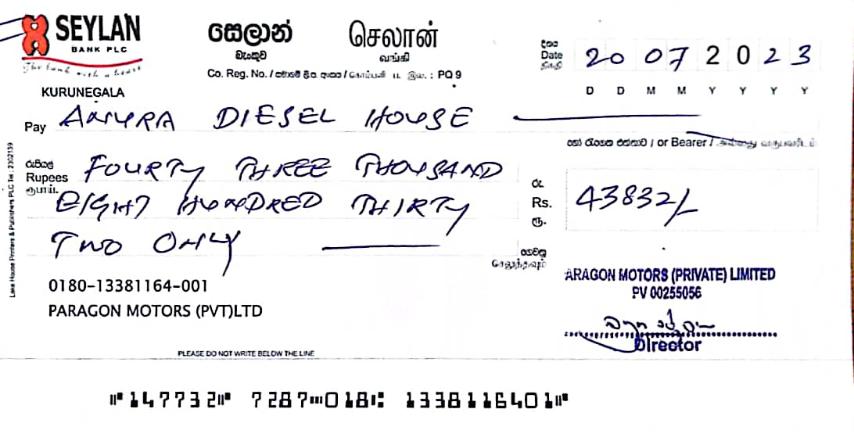 SEYLAN
BANK PLC
The bank with a heart
සෙලාන් செலான்
බැංකුව வங்கி
Co. Reg. No. / සමාගම් ලියා. අංකය / கம்பனி ப. இல. : PQ 9
දිනය
Date 20 07 2023
திகதி
D D M M Y Y Y Y
KURUNEGALA
Pay ANURA DIESEL HOUSE
හෝ රැගෙන එන්නාට / or Bearer / அல்லது வருபவரிடம்
රුපියල්
Rupees FOURTY THREE THOUSAND
ரூபாய்
EIGHT HUNDRED THIRTY
TWO ONLY
රු.
Rs. 43832/-
ரூ.
ගෙවනු
செலுத்தவும்
0180-13381164-001
PARAGON MOTORS (PVT)LTD
ARAGON MOTORS (PRIVATE) LIMITED
PV 00255056
Director
PLEASE DO NOT WRITE BELOW THE LINE
Lake House Printers & Publishers PLC Tel : 2302139
⑈147732⑈ 7287⑉018⑆ 1338116401⑈